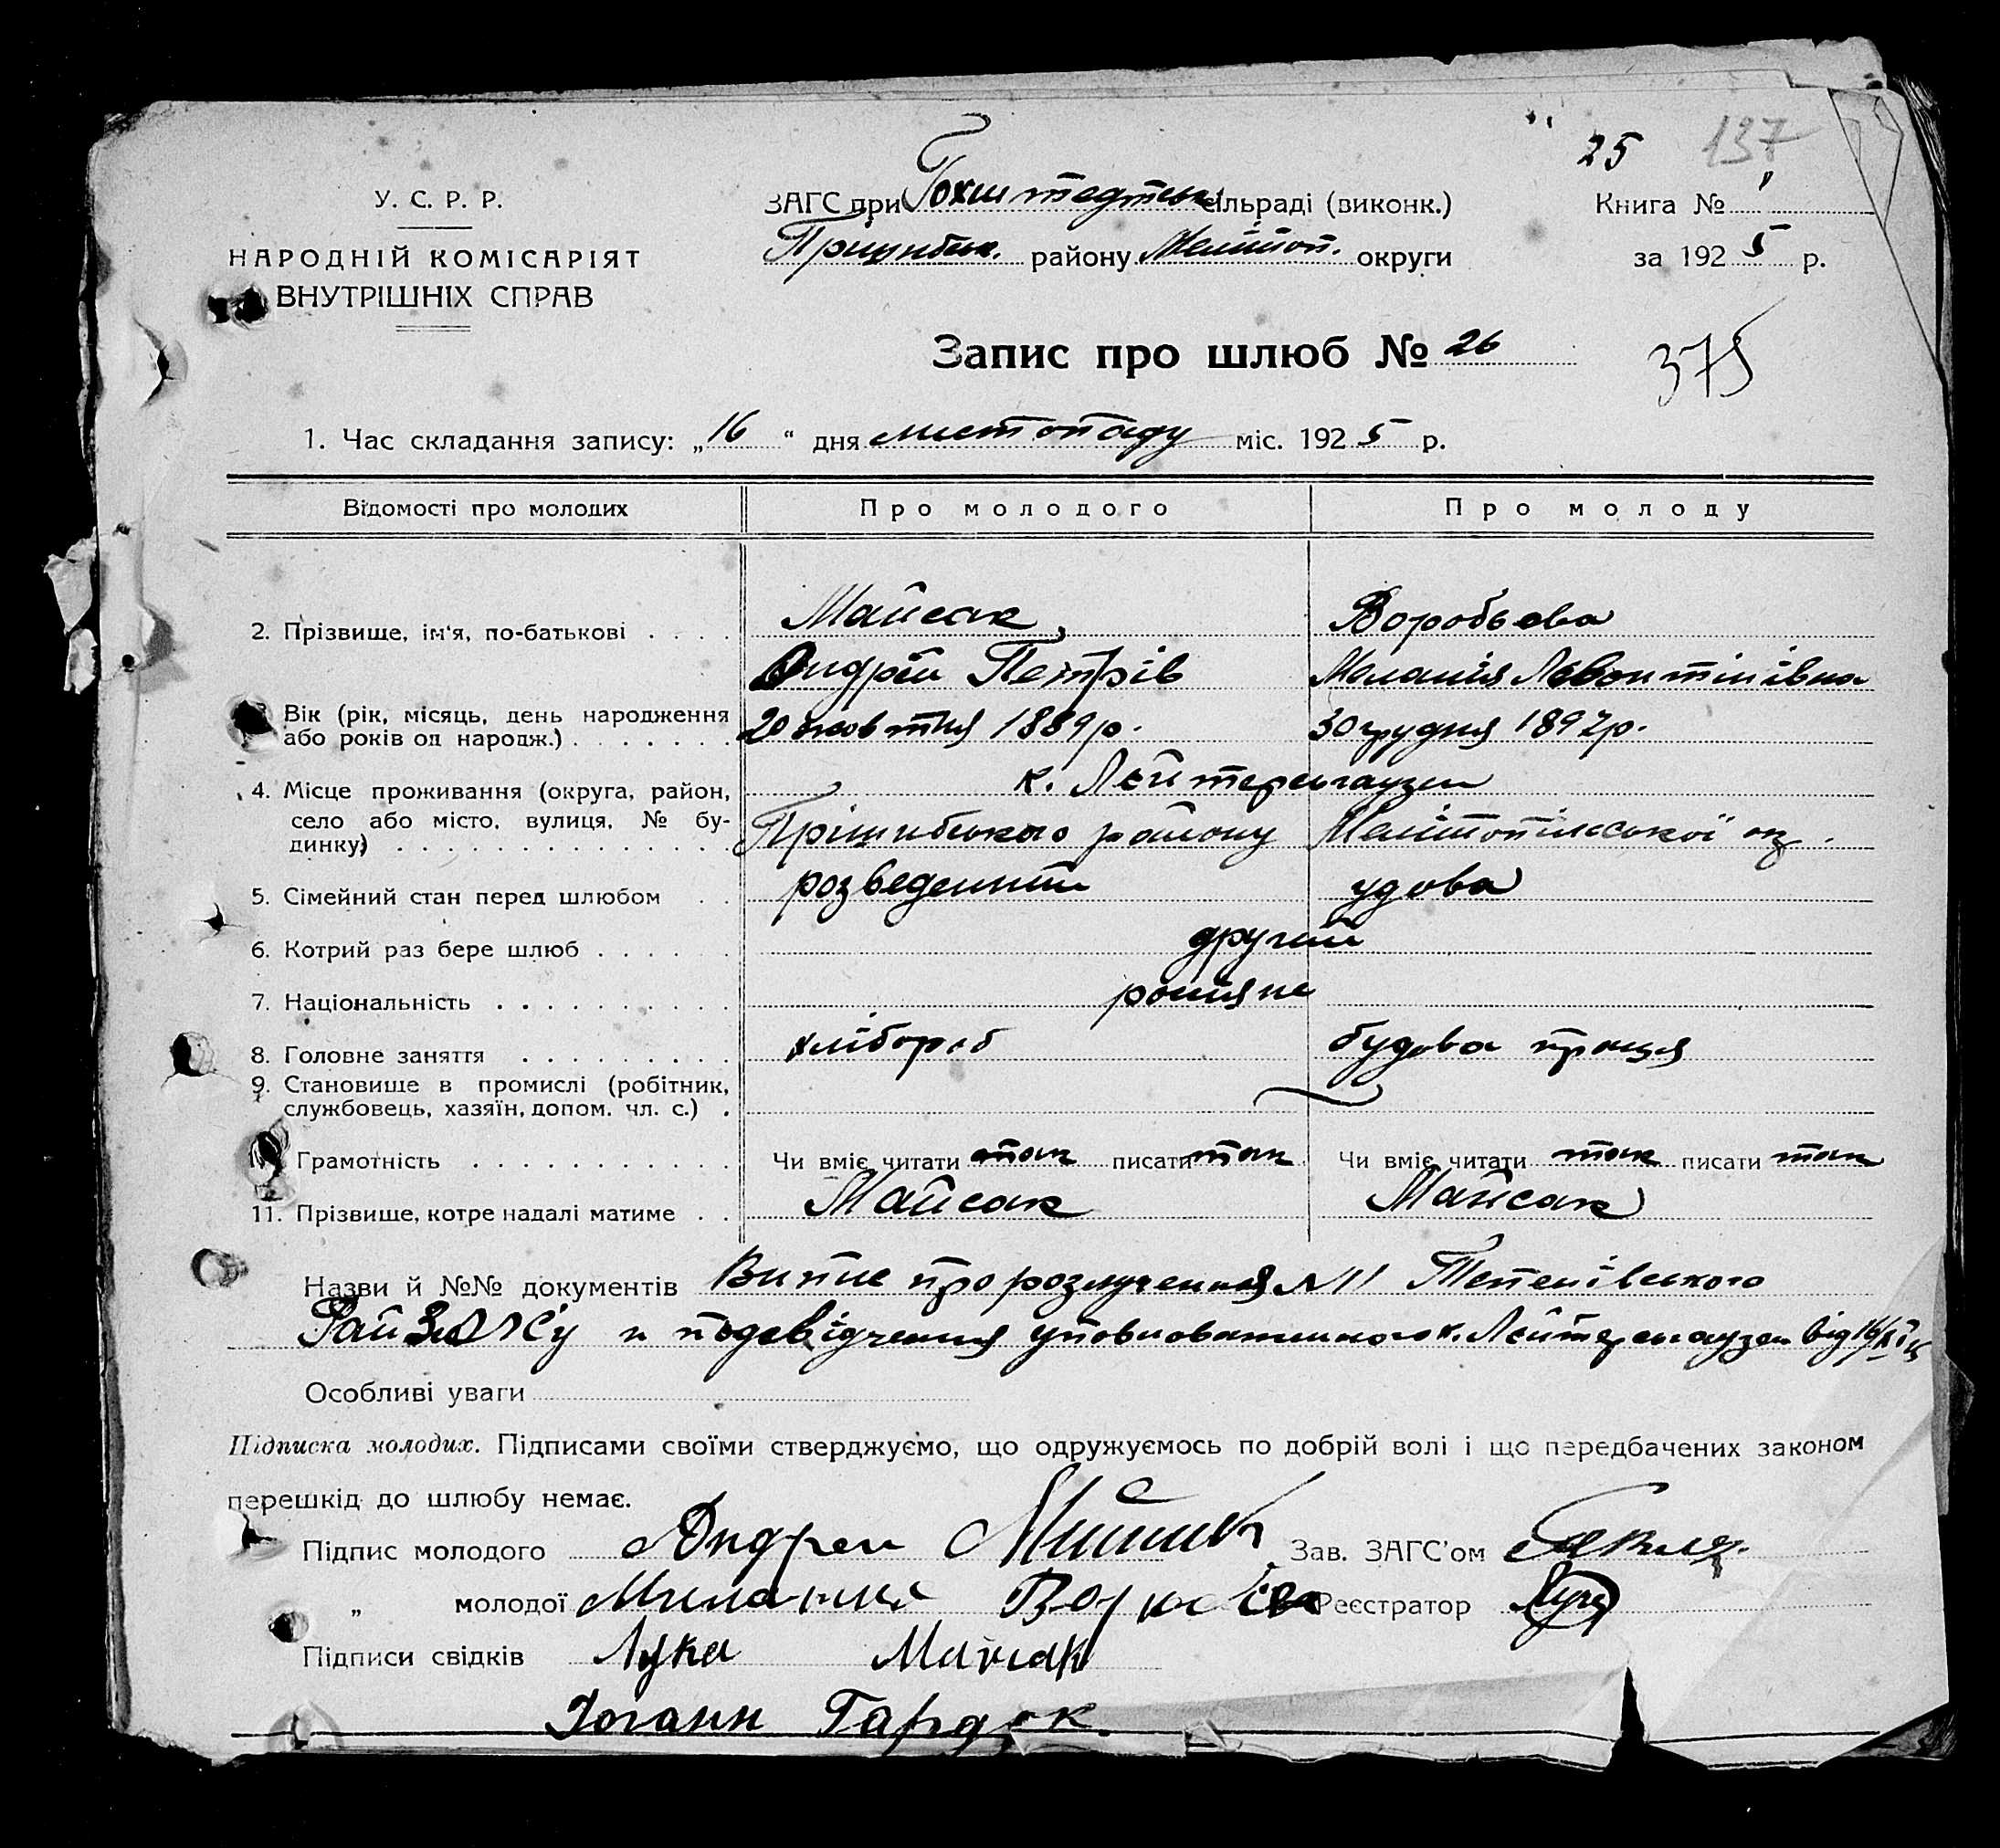 25 137
У. С. Р. Р.
ЗАГС при Гохштедтськ. сільраді (виконк.)
Книга №
НАРОДНІЙ КОМІСАРІЯТ
Пришибськ. району Мелітоп. округи
за 1925 р.
ВНУТРІШНІХ СПРАВ
Запис про шлюб № 26
375
1. Час складання запису: „16“ дня листопаду міс. 1925 р.
Відомості про молодих Про молодого Про молоду
Майсак Воробьева
2. Прізвище, ім'я, по-батькові
Андрій Петрів Меланія Левонтіивна
Вік (рік, місяць, день народження
або років од народж.) 20 жовтня 1889 р. 30 грудня 1897 р.
к. Лейтерсгаузен
4. Місце проживання (округа, район,
село або місто, вулиця, № бу-
динку) Прішибського району Мелітопільської ок.
5. Сімейний стан перед шлюбом розведенний удова
6. Котрий раз бере шлюб другий
7. Національність росияне
8. Головне заняття хлібороб будова праця
9. Становище в промислі (робітник,
службовець, хазяїн, допом. чл. с.)
Грамотність Чи вміє читати так писати так Чи вміє читати так писати так
11. Прізвище, котре надалі матиме Майсак Майсак
Назви й №№ документів Випис про розлучення №11 Тепенівського
Рай и посвідчення уповноваженного к. Лейтерсгаузен від 16/XI
Особливі уваги
Підписка молодих. Підписами своїми стверджуємо, що одружуємось по добрій волі і що передбачених законом
перешкід до шлюбу немає.
Підпис молодого Андреи Зав. ЗАГС'ом
„ молодої Реєстратор
Підписи свідків Лука Майсак
Иоганн Гардок.